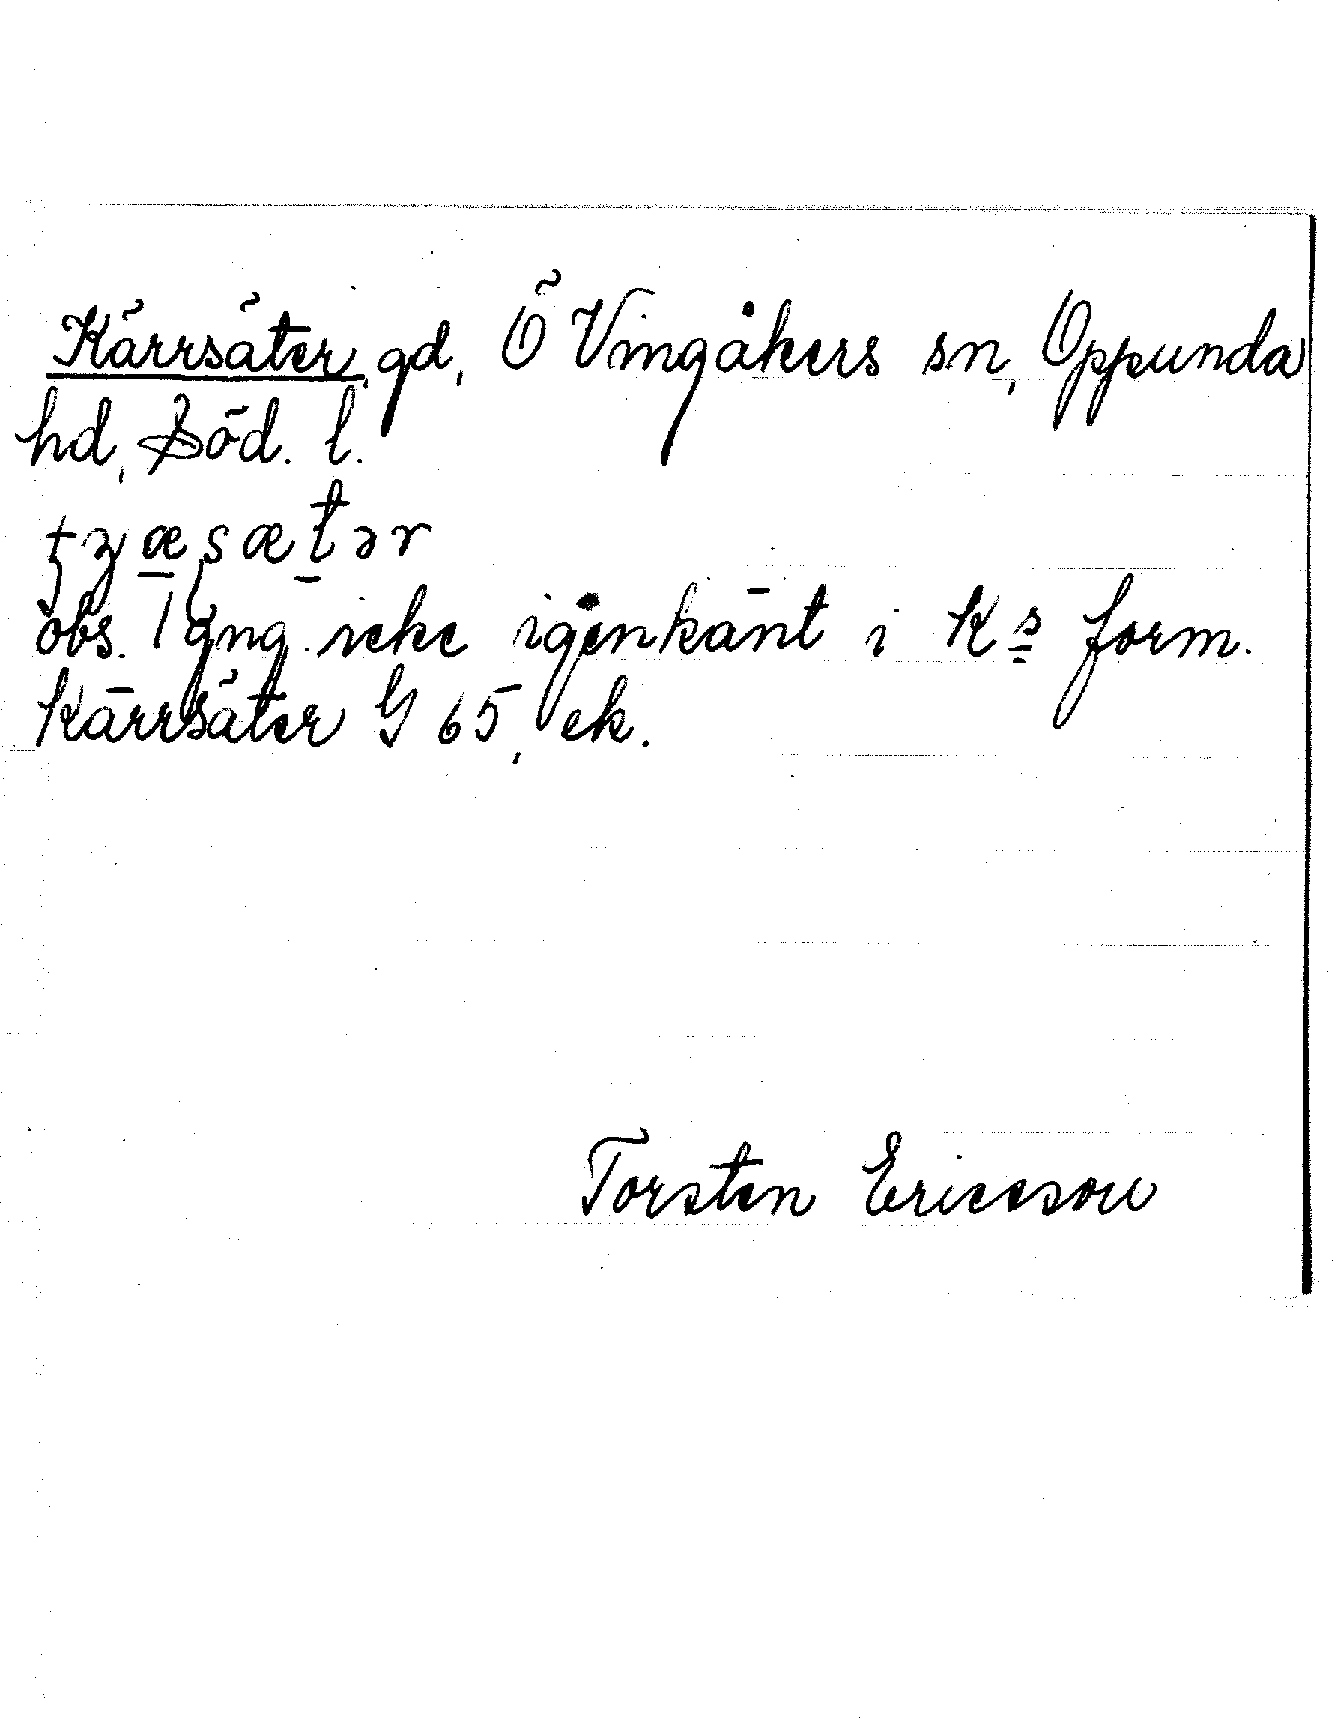 Kärrsäter, gd, Ö Vingåkers sn, Oppunda
hd, Söd. l.
obs. 1 gng icke igenkänt i Ks form.
Kärrsäter G 65, ek.
Torsten Ericsson